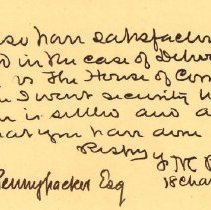 so have satisfaction
in the case of Detroi
vs The House of Con
I went security h
n is settled and a
hat you have done
Respy
Pennypacker Esq 18 Cha